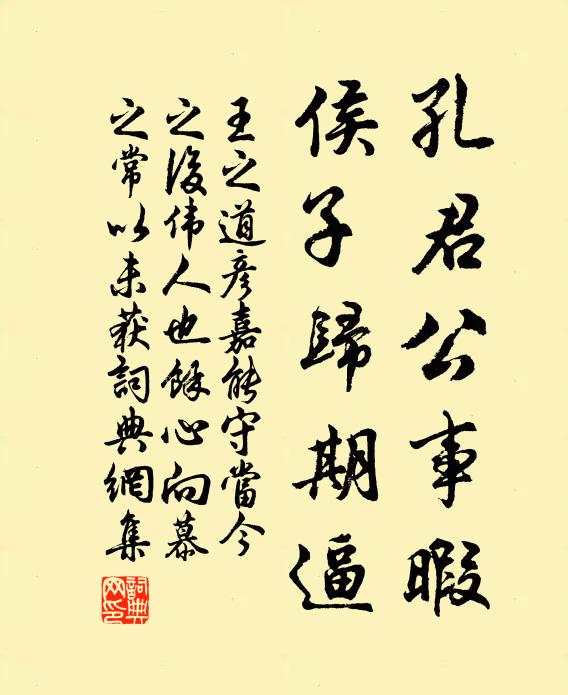 孔君公事暇
侯子歸期逼
王之道彦嘉能守當今
之後偉人也餘心向慕
之常以未获詞典網集
詞典
网印